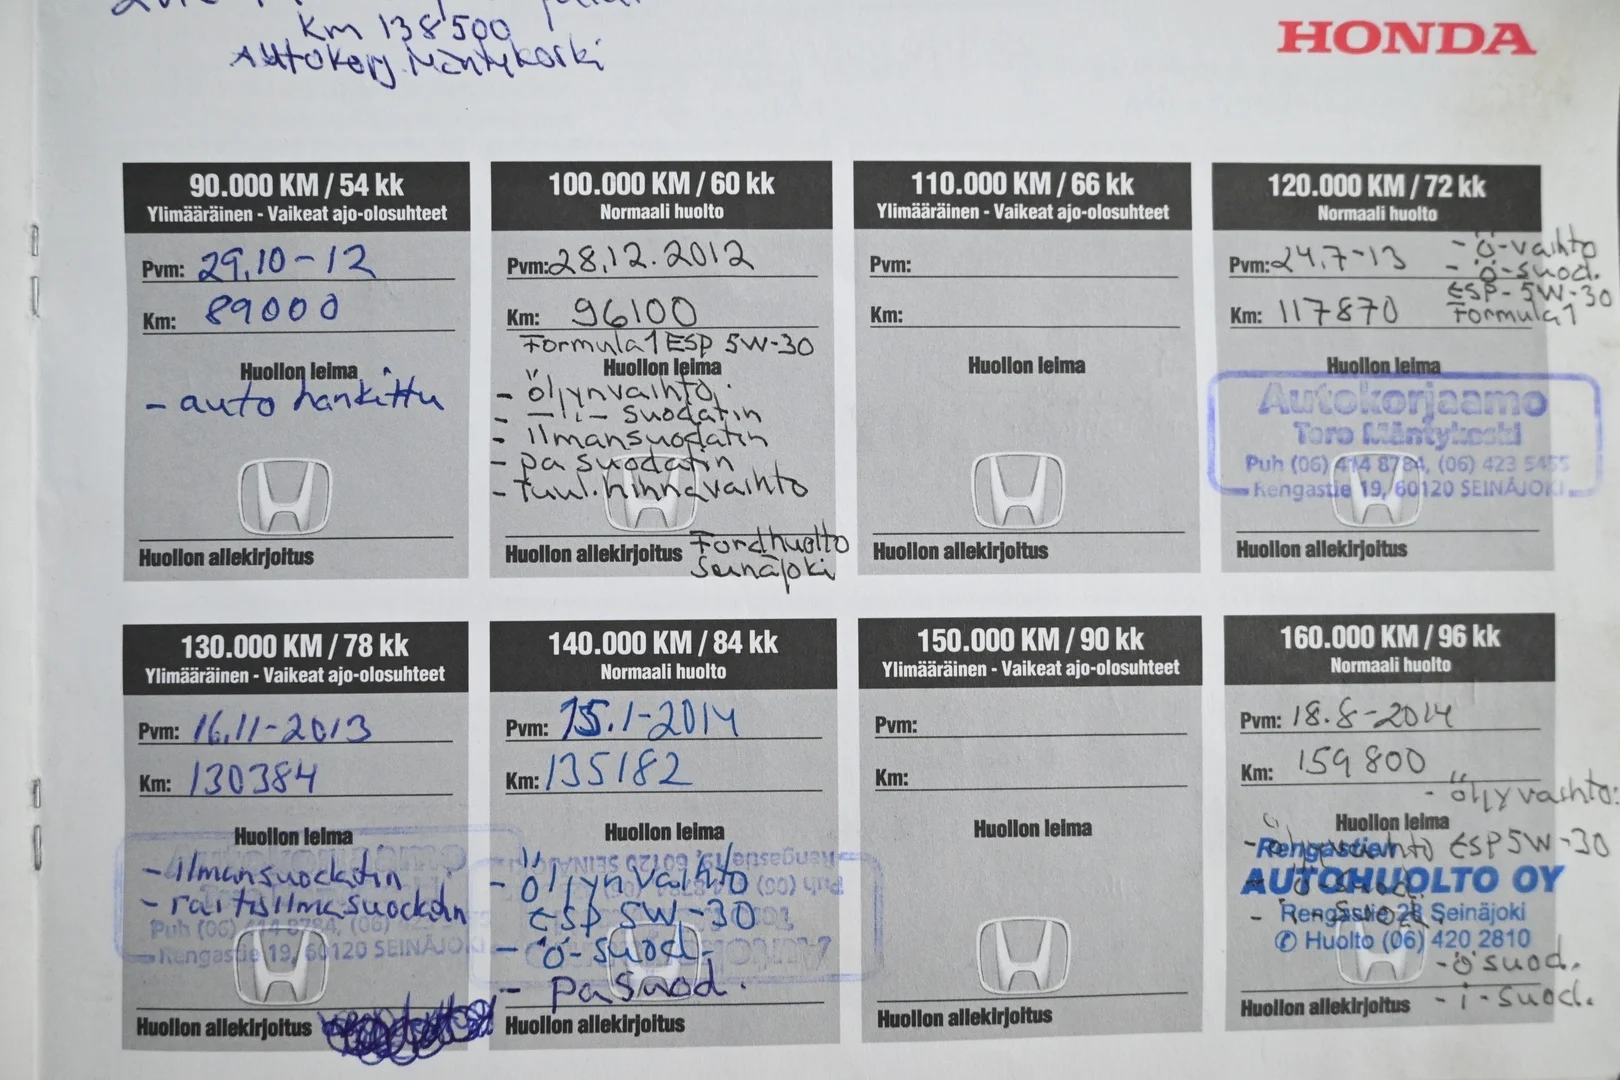 Km 138500
Autokorj. Mäntykoski
HONDA
90.000 KM / 54 kk
Ylimääräinen - Vaikeat ajo-olosuhteet
Pvm: 29.10-12
Km: 89000
Huollon leima
- auto hankittu
Huollon allekirjoitus
100.000 KM / 60 kk
Normaali huolto
Pvm: 28.12.2012
Km: 96100
Formula1 ESP 5W-30
Huollon leima
- öljynvaihto.
- -li- suodatin
- ilmansuodatin
- pa suodatin
- tuul.hihnavaihto
Huollon allekirjoitus Fordhuolto
Seinäjoki
110.000 KM / 66 kk
Ylimääräinen - Vaikeat ajo-olosuhteet
Pvm:
Km:
Huollon leima
Huollon allekirjoitus
120.000 KM / 72 kk
Normaali huolto
Pvm: 24.7-13
- ö-vaihto
- ö-suod.
ESP-5W-30
Formula1
Km: 117870
Huollon leima
Autokorjaamo
Toro Mäntykoski
Puh (06) 414 8784, (06) 423 5455
Rengastie 19, 60120 SEINÄJOKI
Huollon allekirjoitus
130.000 KM / 78 kk
Ylimääräinen - Vaikeat ajo-olosuhteet
Pvm: 16.11-2013
Km: 130384
Huollon leima
- ilmansuodatin
- raitisilmasuodatin
Puh (06) 414 8784, (06)
Rengastie 19, 60120 SEINÄJOKI
Huollon allekirjoitus
140.000 KM / 84 kk
Normaali huolto
Pvm: 15.1-2014
Km: 135182
Huollon leima
- öljynvaihto
ESP 5W-30
- ö-suod.
- pa suod.
Huollon allekirjoitus
150.000 KM / 90 kk
Ylimääräinen - Vaikeat ajo-olosuhteet
Pvm:
Km:
Huollon leima
Huollon allekirjoitus
160.000 KM / 96 kk
Normaali huolto
Pvm: 18.8-2014
Km: 159800
- öljyvaihto:
Huollon leima
ESP 5W-30
Rengastien
AUTOHUOLTO OY
Rengastie 28 Seinäjoki
✆ Huolto (06) 420 2810
- ö suod.
- i-suod.
Huollon allekirjoitus